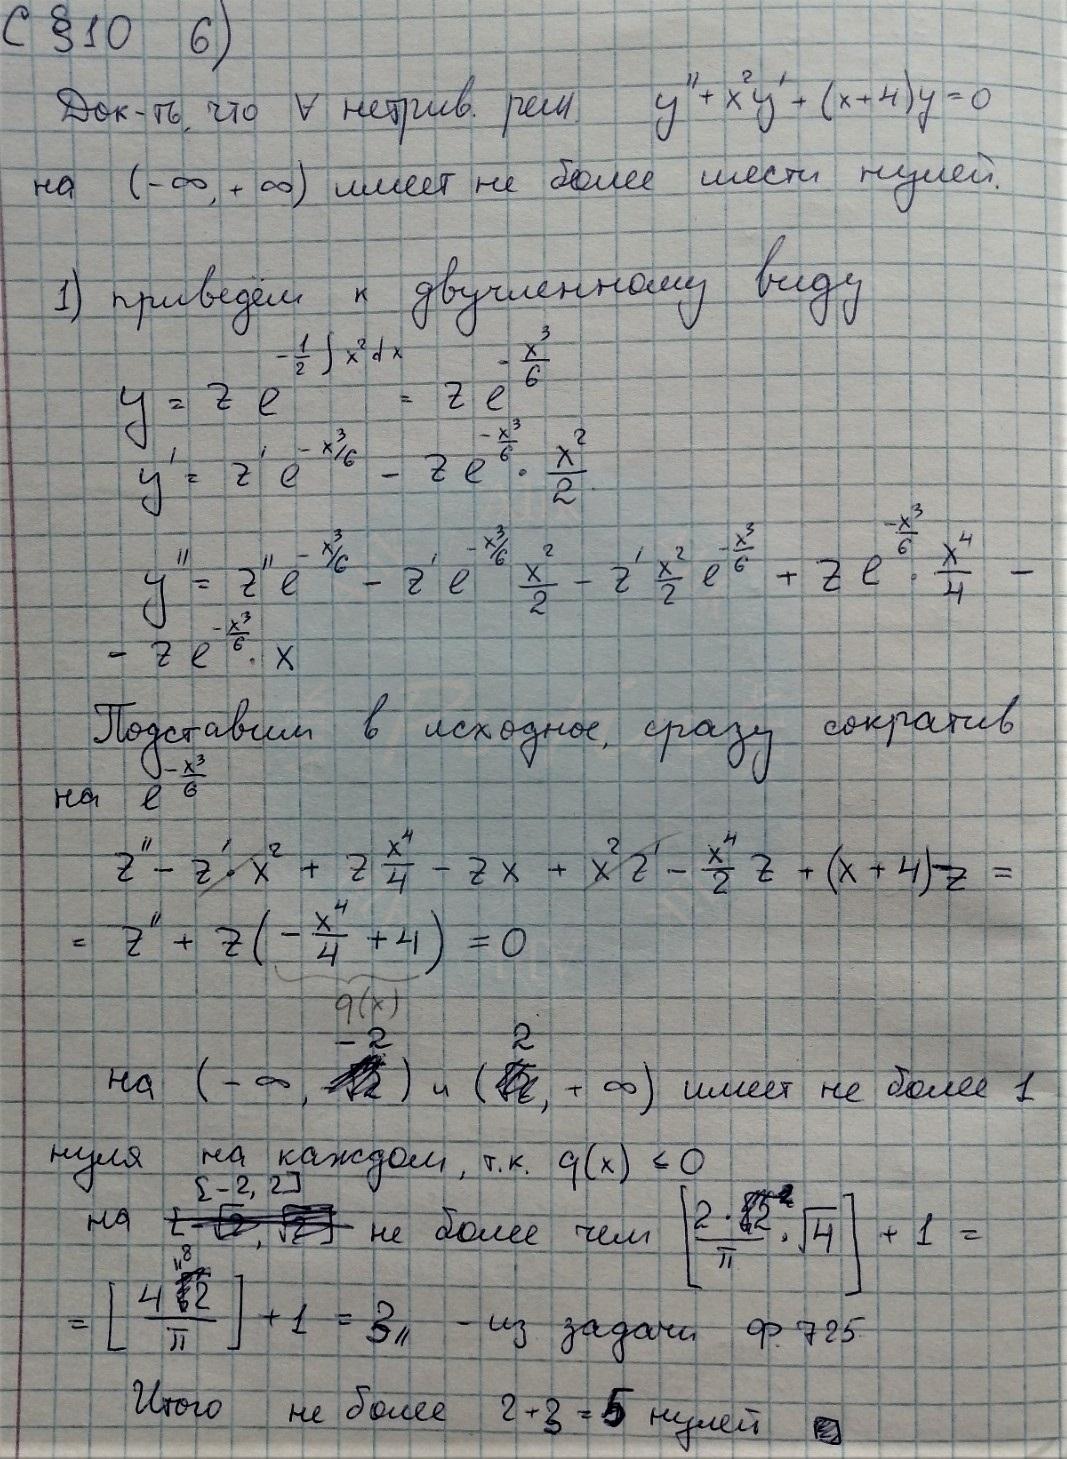 С §10 6)
Док-ть, что ∀ нетрив. реш. y'' + x²y' + (x+4)y = 0
на (-∞, +∞) имеет не более шести нулей.
1) приведём к двучленному виду
y = z e^{-1/2 ∫ x² dx} = z e^{-x³/6}
y' = z' e^{-x³/6} - z e^{-x³/6} · x²/2
y'' = z'' e^{-x³/6} - z' e^{-x³/6} x²/2 - z' x²/2 e^{-x³/6} + z e^{-x³/6} · x⁴/4 -
- z e^{-x³/6} · x
Подставим в исходное, сразу сократив
на e^{-x³/6}
z'' - z' · x² + z x⁴/4 - zx + x² z' - x⁴/2 z + (x+4) z =
= z'' + z(- x⁴/4 + 4) = 0
q(x)
на (-∞, -2) и (2, +∞) имеет не более 1
нуля на каждом, т.к. q(x) ≤ 0
на [-2, 2] не более чем [2·2/π · √4] + 1 =
= [8/π] + 1 = 3,, - из задачи Ф. 725
Итого не более 2+3=5 нулей